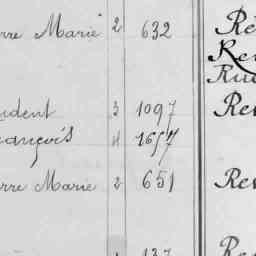 rre Marie 2 632 Ré
Ren
Ru
udent 3 1097 Rev
rançois 4 1657
rre Marie 2 651 Rev
137 Rev